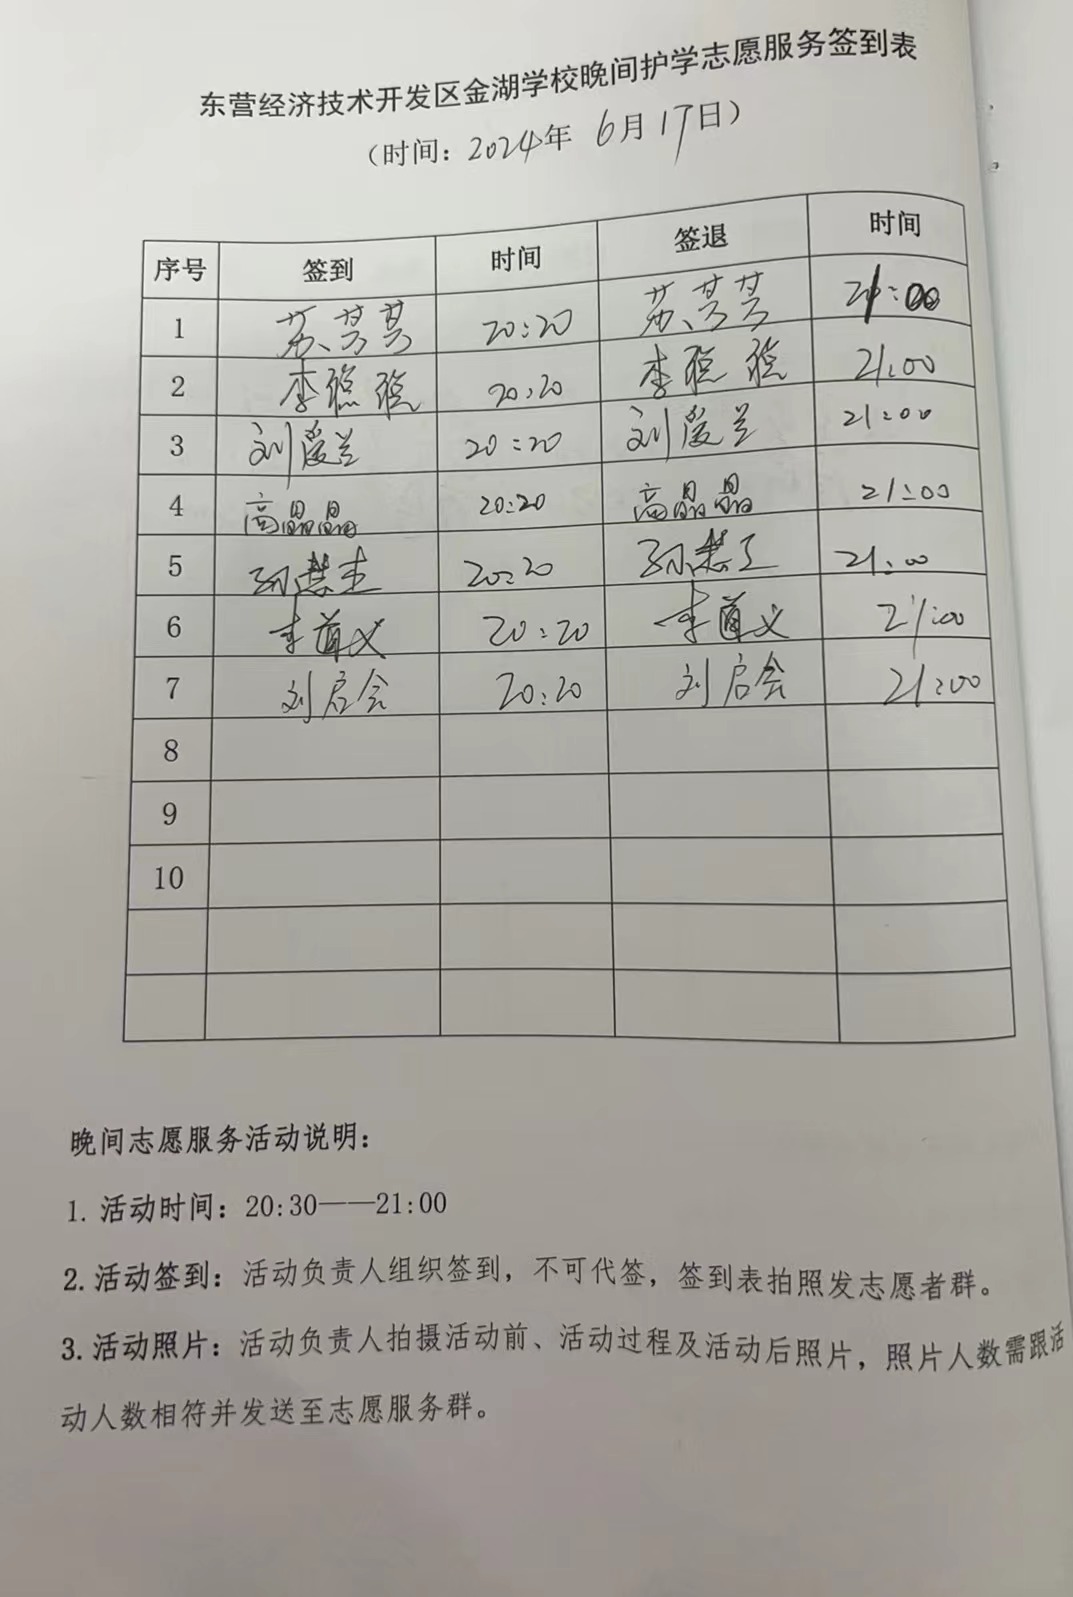 东营经济技术开发区金湖学校晚间护学志愿服务签到表
（时间：2024年 6月17日）
序号 签到 时间 签退 时间
1 苏芸芸 20:20 苏芸芸 21:00
2 李 20:20 李 21:00
3 刘爱兰 20:20 刘爱兰 21:00
4 高晶晶 20:20 高晶晶 21:00
5 孙慧 20:20 孙慧 21:00
6 李道义 20:20 李道义 21:00
7 刘启会 20:20 刘启会 21:00
8
9
10
晚间志愿服务活动说明：
1. 活动时间：20:30——21:00
2.活动签到：活动负责人组织签到，不可代签，签到表拍照发志愿者群。
3.活动照片：活动负责人拍摄活动前、活动过程及活动后照片，照片人数需跟活
动人数相符并发送至志愿服务群。